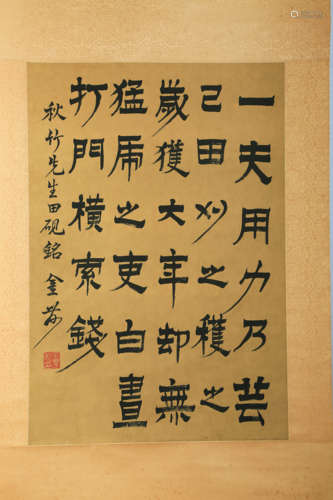 一夫用力乃芸
己田刈之穫之
歲獲大年却無
猛虎之吏白晝
打門橫索錢
秋竹先生田硯銘 金農